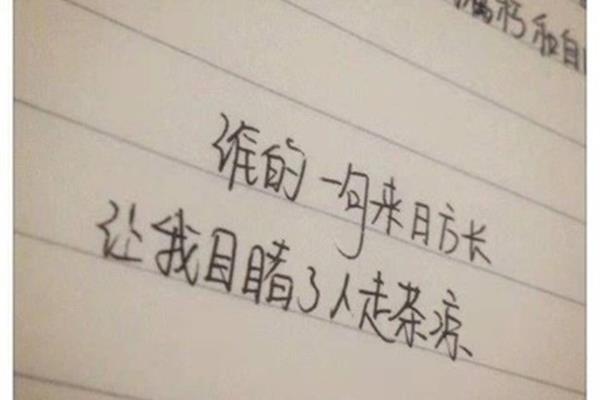 和自
谁的一句来日方长
让我目睹了人走茶凉